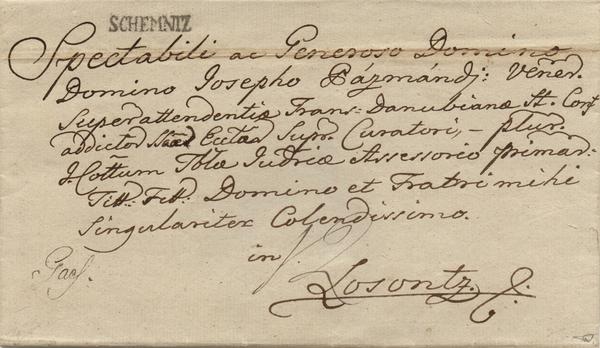 SCHEMNIZ
Spectabili ac Generoso Domino
Domino Josepho Pázmándj: Vener.
Superattendentiæ Trans-Danubianæ St. Conf
addictor Eccłar Supr. Curatori, – plur.
I. Cottuum Tblæ Judriæ Assessorio primar.
Titt. Titt. Domino et Fratri mihi
Singulariter Colendissimo.
in
Losontz.